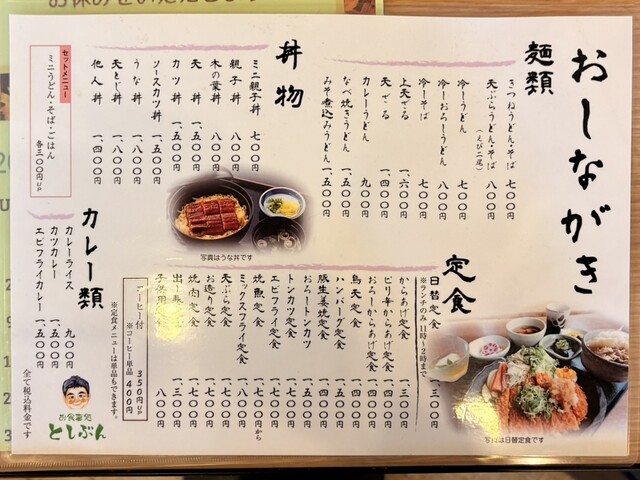 おしながき
麺類
きつねうどん・そば 七〇〇円
天ぷらうどん・そば 八〇〇円
(えび二尾)
冷しうどん 七〇〇円
冷しおろしうどん 八〇〇円
冷しそば 七〇〇円
上天ざる 一、六〇〇円
天ざる 一、四〇〇円
カレーうどん 九〇〇円
なべ焼きうどん 一、五〇〇円
みそ煮込みうどん 一、五〇〇円
丼物
ミニ親子丼 七〇〇円
親子丼 八〇〇円
木の葉丼 八〇〇円
天丼 一、五〇〇円
カツ丼 一、五〇〇円
ソースカツ丼 一、五〇〇円
うな丼 一、八〇〇円
天とじ丼 一、五〇〇円
他人丼 一、四〇〇円
セットメニュー
ミニうどん・そば・ごはん
各三〇〇円UP
写真はうな丼です
定食
日替定食 一、三〇〇円
※ランチのみ 11時〜2時まで
からあげ定食
ピリ辛からあげ定食
おろしからあげ定食
鳥天定食
ハンバーグ定食
豚生姜焼定食
おろしトンカツ
トンカツ定食
エビフライ定食
ミックスフライ定食
焼魚定食
天ぷら定食
お造り定食
焼肉定食
コーヒー付 350円UP
※コーヒー単品 400円
※定食メニューは単品もできます。
写真は日替定食です
カレー類
カレーライス 九〇〇円
カツカレー 一、五〇〇円
エビフライカレー 一、五〇〇円
お食事処
としぶん
全て税込料金です